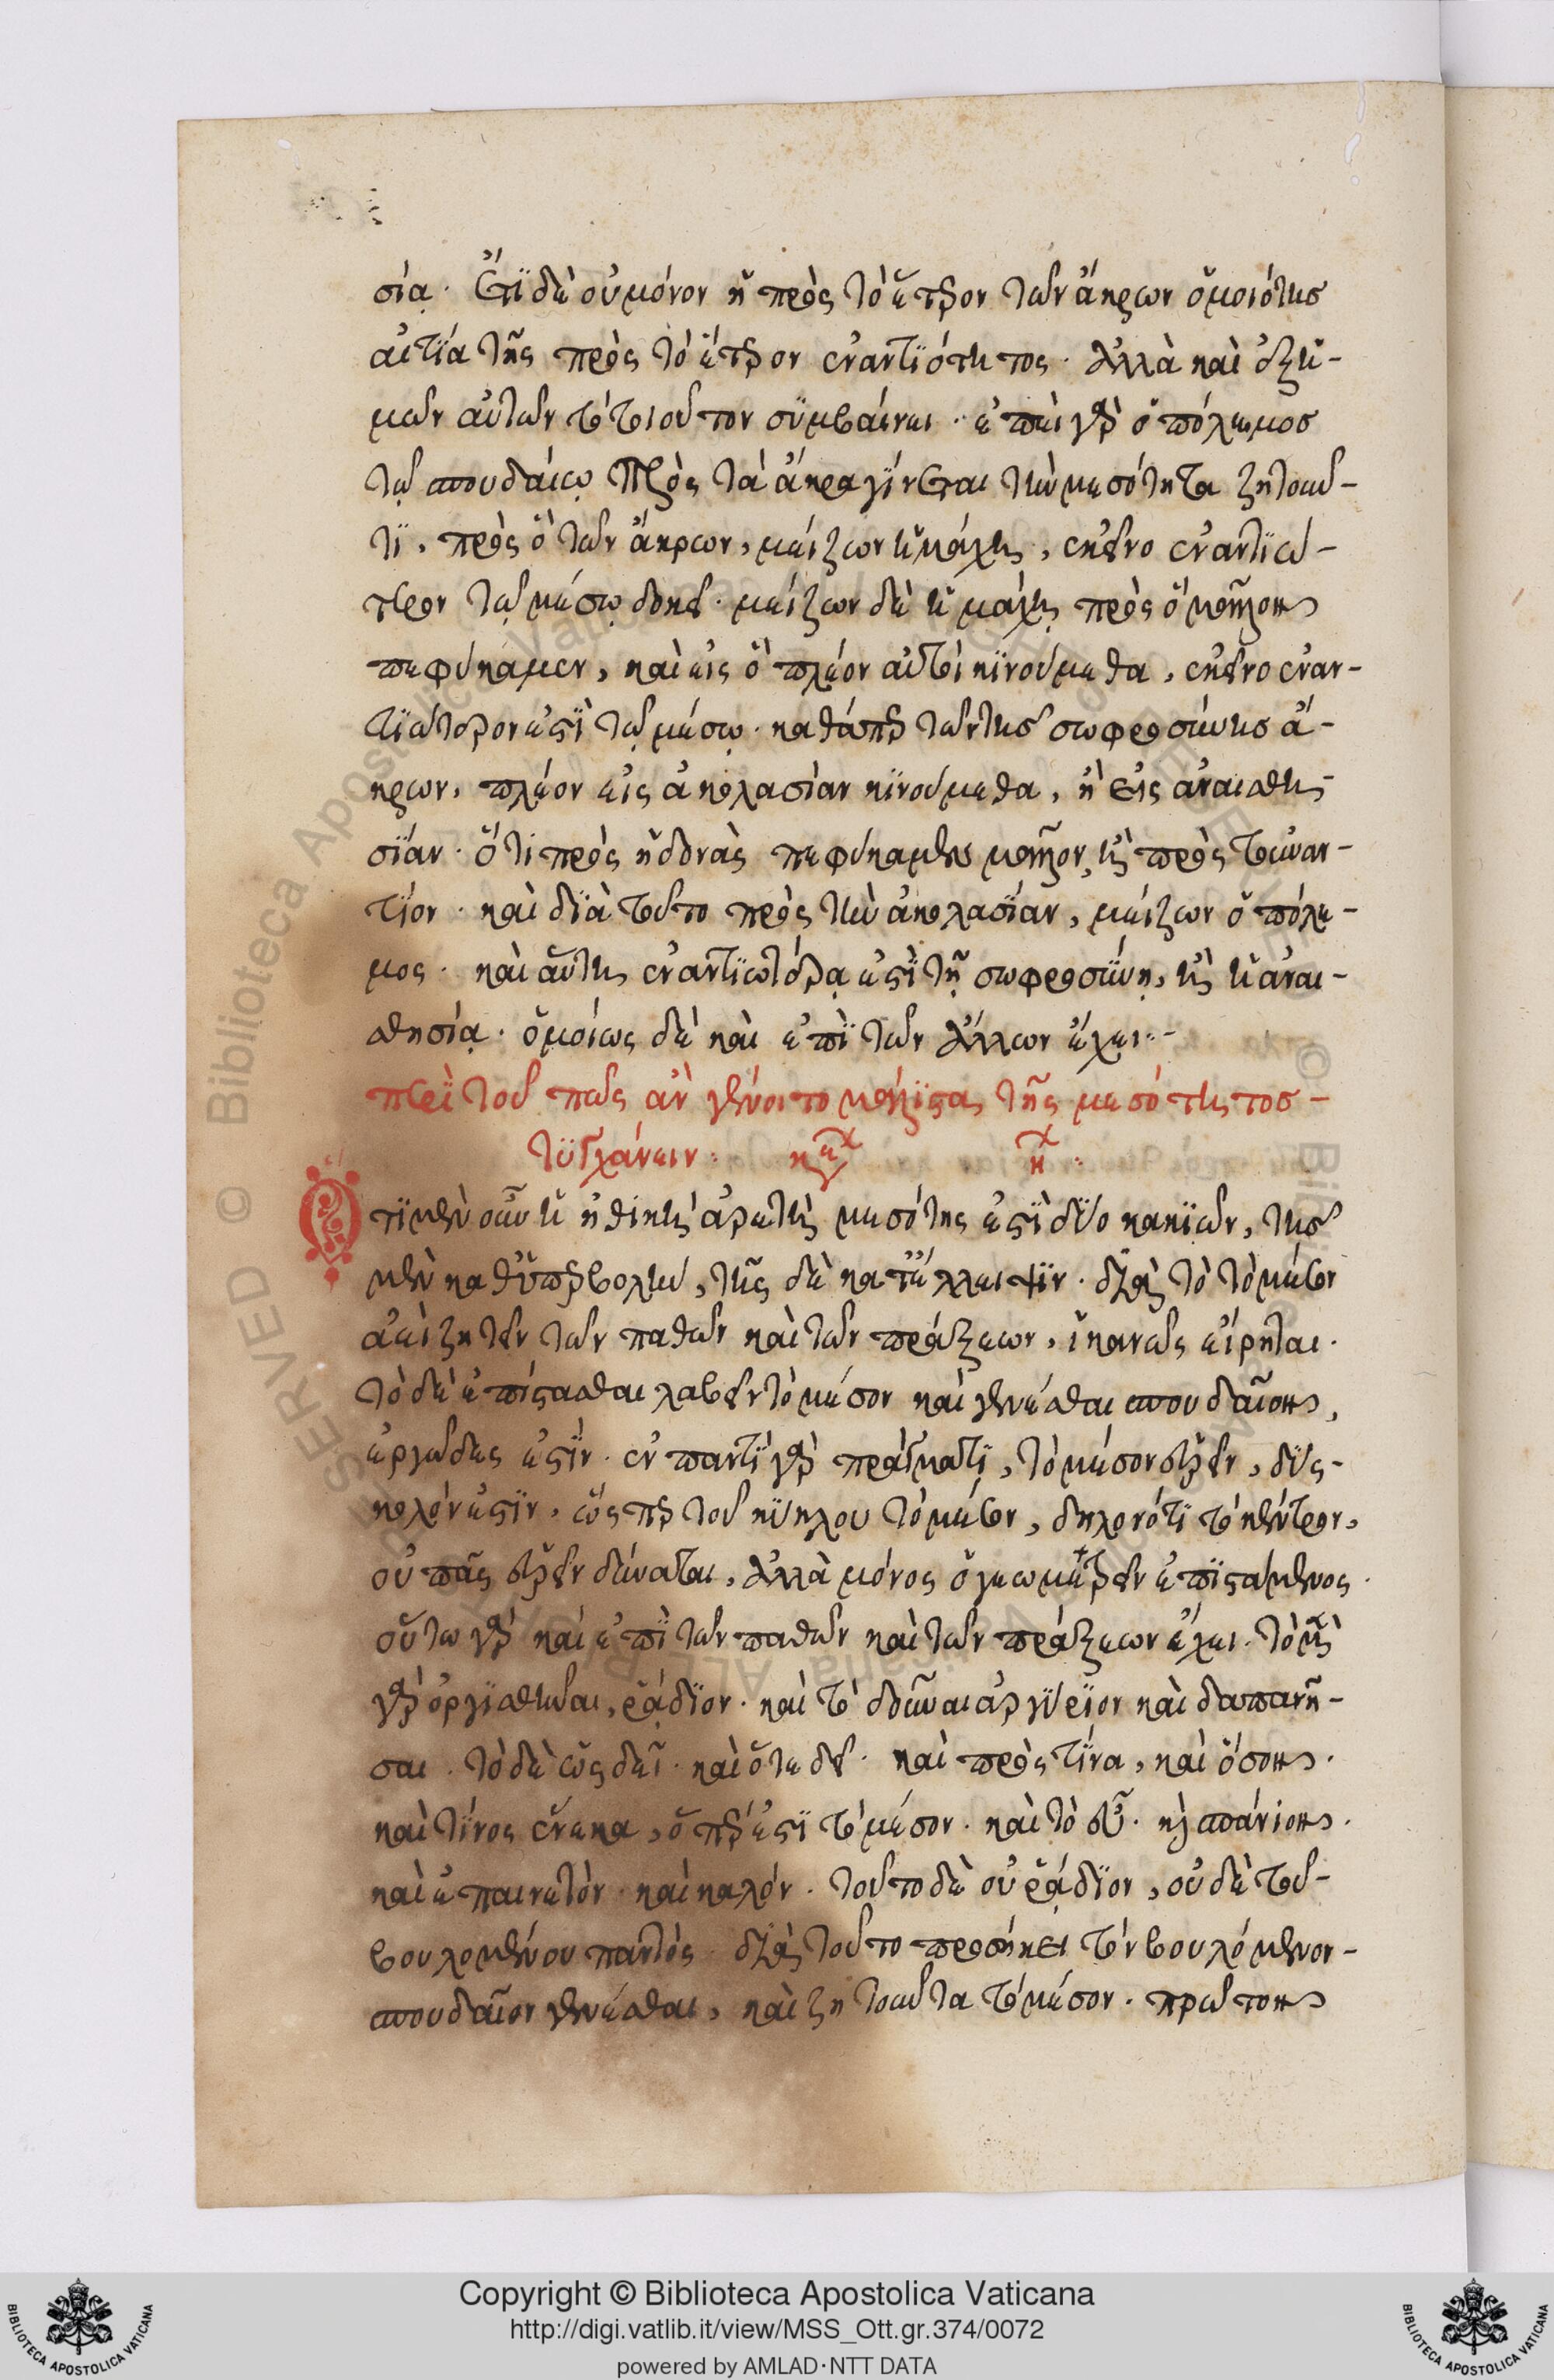 σία. Ἔτι δὲ οὐ μόνον ἡ πρὸς τὸ ἕτερον τῶν ἄκρων ὁμοιότης
αἰτία τῆς πρὸς τὸ ἕτερον ἐναντιότητος. ἀλλὰ καὶ ἐξ ἡ-
μῶν αὐτῶν τὸ τοιοῦτον συμβαίνει. ἐπεὶ γὰρ ὁ πόλεμος
τῷ σπουδαίῳ πρὸς τὰ ἄκρα γίνεται τὴν μεσότητα ζητοῦν-
τι, πρὸς ὃ τῶν ἄκρων, μείζων ἡ μάχη, ἐκεῖνο ἐναντιώ-
τερον τῷ μέσῳ δοκεῖ. μείζων δὲ ἡ μάχη πρὸς ὃ μᾶλλον
πεφύκαμεν, καὶ εἰς ὃ πλέον αὐτοὶ κινούμεθα, ἐκεῖνο ἐναν-
τιώτερον ἐστὶ τῷ μέσῳ. καθάπερ τῶν τῆς σωφροσύνης ἄ-
κρων, πλέον εἰς ἀκολασίαν κινούμεθα, ἢ εἰς ἀναισθη-
σίαν. ὅτι πρὸς ἡδονὰς πεφύκαμεν μᾶλλον, ἢ πρὸς τοὐναν-
τίον. καὶ διὰ τοῦτο πρὸς τὴν ἀκολασίαν, μείζων ὁ πόλε-
μος. καὶ αὕτη ἐναντιωτέρα ἐστὶ τῇ σωφροσύνῃ, ἢ ἡ ἀναι-
σθησία. ὁμοίως δὲ καὶ ἐπὶ τῶν ἄλλων ἔχει:-
περὶ τοῦ πῶς ἂν γένοιτο μάλιστα τῆς μεσότητος-
τυγχάνειν:
Ὅτι μὲν οὖν ἡ ἠθικὴ ἀρετὴ μεσότης ἐστὶ δύο κακιῶν, τῆς
μὲν καθ' ὑπερβολὴν, τῆς δὲ κατ' ἔλλειψιν. διὰ τὸ τὸ μέσον
ἀεὶ ζητεῖν τῶν παθῶν καὶ τῶν πράξεων, ἱκανῶς εἴρηται.
τὸ δὲ ἐπίστασθαι λαβεῖν τὸ μέσον καὶ γενέσθαι σπουδαῖον,
ἐργῶδες ἐστίν. ἐν παντὶ γὰρ πράγματι, τὸ μέσον εὑρεῖν, δύς-
κολόν ἐστιν. ὥςπερ τοῦ κύκλου τὸ μέσον, δηλονότι τὸ κέντρον,
οὐ πᾶς εὑρεῖν δύναται, ἀλλὰ μόνος ὁ γεωμετρεῖν ἐπιστάμενος.
οὕτω γὰρ καὶ ἐπὶ τῶν παθῶν καὶ τῶν πράξεων ἔχει. τὸ μὲν
γὰρ ὀργισθῆναι, ῥᾴδιον. καὶ τὸ δοῦναι ἀργύριον καὶ δαπανῆ-
σαι. τὸ δὲ ὡς δεῖ. καὶ ὅτε δεῖ. καὶ πρὸς τίνα, καὶ ὅσον.
καὶ τίνος ἕνεκα, ὅπερ ἐστὶ τὸ μέσον. καὶ τὸ εὖ. καὶ σπάνιον.
καὶ ἐπαινετὸν. καὶ καλόν. τοῦτο δὲ οὐ ῥᾴδιον, οὐδὲ τοῦ-
βουλομένου παντός. διὰ τοῦτο προσήκει τὸν βουλόμενον-
σπουδαῖον γενέσθαι, καὶ ζητοῦντα τὸ μέσον. πρῶτον
Copyright © Biblioteca Apostolica Vaticana
http://digi.vatlib.it/view/MSS_Ott.gr.374/0072
powered by AMLAD·NTT DATA
BIBLIOTECA APOSTOLICA VATICANA
BIBLIOTECA APOSTOLICA VATICANA